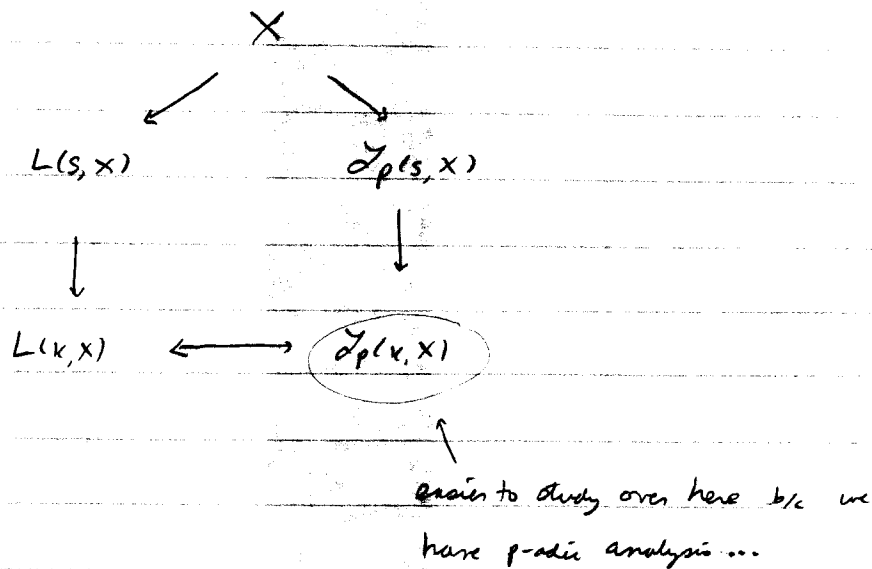 X
L(s, X) ℒp(s, X)
L(k, X) ℒp(k, X)
easier to study over here b/c we
have p-adic analysis ...